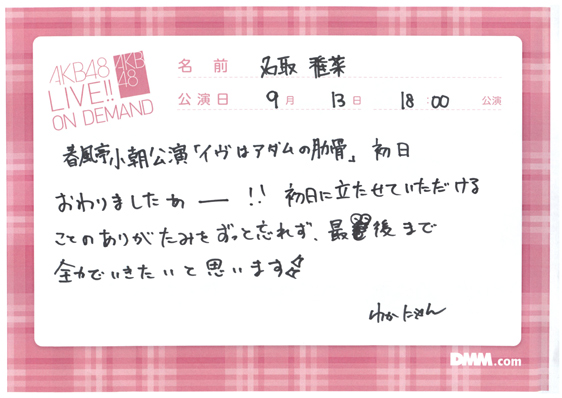 AKB48
LIVE!!
ON DEMAND
AKB
48
名前 名取 稚菜
公演日 9月 13日 18:00 公演
春風亭小朝公演「イヴはアダムの肋骨」 初日
おわりましたぁー!! 初日に立たせていただける
ことのありがたみをずっと忘れず、最後まで
全力でいきたいと思います
わかにゃん
DMM.com